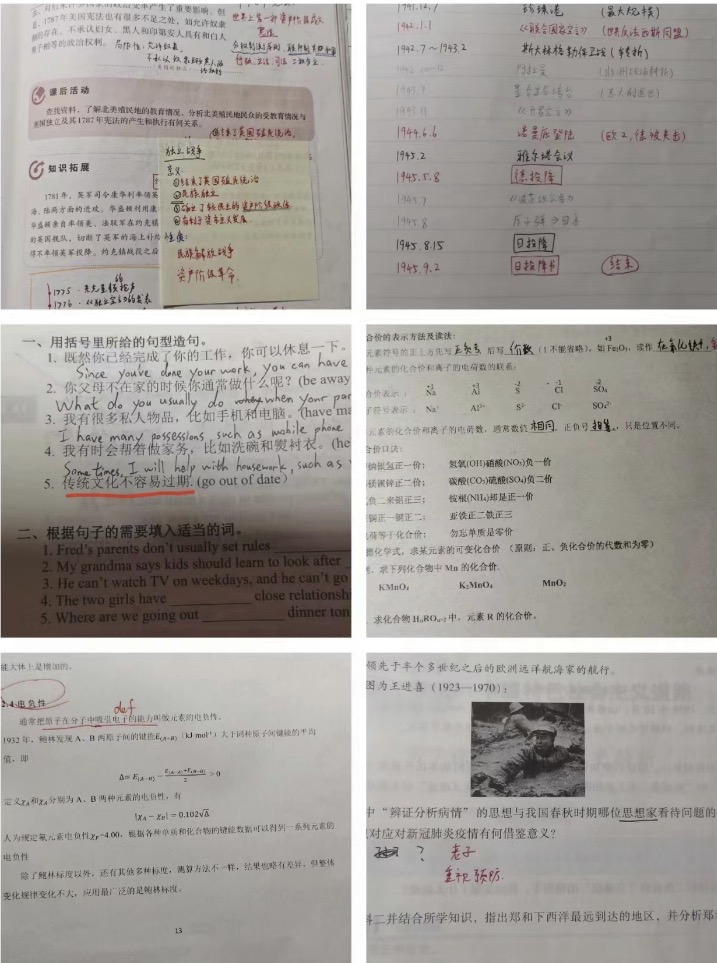 是，1787年美国宪法也有很多不足之处，如允许奴隶
的存在、不承认妇女、黑人和印第安人具有和白人
等的政治权利。
局限性：允许奴隶
世界上第一部资产阶级成文
宪法
课后活动
查找资料，了解北美殖民地的教育情况，分析北美殖民地民众的受教育情况与
美国独立及其1787年宪法的产生和执行有何关系。
结束了英国殖民统治
知识拓展
1781年，英军司令康华利率领英
海、陆两方面的进攻，华盛顿利用
华盛顿亲自率领美、法联军在约克镇
的英国舰队，切断了英军的海上补给
得不率领英军投降。约克镇战役之后
独立战争
意义：
①结束了英国殖民统治
②民族独立
③确立了较民主的资产阶级政体
④有利于资本主义发展
性质：
民族解放战争
资产阶级革命
1775
1776
1941.12.7 珍珠港 （最大规模）
1942.1.1 《联合国家宣言》 （世界反法西斯同盟）
1942.7～1943.2 斯大林格勒保卫战（转折）
1944.6.6 诺曼底登陆 （欧2，德被夹击）
1945.2 雅尔塔会议
1945.5.8 德投降
1945.8 原子弹→日本
1945.8.15 日投降
1945.9.2 日投降书 结束
一、用括号里所给的句型造句。
1. 既然你已经完成了你的工作，你可以休息一下。
Since you've done your work, you can have
2. 你父母不在家的时候你通常做什么呢？(be away
What do you usually do when your par
3. 我有很多私人物品，比如手机和电脑。(have ma
I have many possessions, such as mobile phone
4. 我有时会帮着做家务，比如洗碗和熨衬衣。(he
Sometimes, I will help with housework, such as
5. 传统文化不容易过期. (go out of date)
二、根据句子的需要填入适当的词。
1. Fred's parents don't usually set rules
2. My grandma says kids should learn to look after
3. He can't watch TV on weekdays, and he can't go
4. The two girls have close relationsh
5. Where are we going out dinner ton
合价的表示方法及读法：
元素符号的正上方先写 正负号 后写 价数 （1不能省略），如 Fe₂O₃，读作
+3
种元素的化合价和离子的电荷数的联系：
+1 +3 -2 -1 -2
价表示： Na Al S Cl SO₄
子符号表示： Na⁺ Al³⁺ S²⁻ Cl⁻ SO₄²⁻
元素的化合价和离子的电荷数，通常数值 相同，正负号 相同，只是位置不同。
合价口诀：
钠银氢正一价； 氢氧(OH)硝酸(NO₃)负一价
镁钡锌正二价； 碳酸(CO₃)硫酸(SO₄)负二价
负二来铝正三； 铵根(NH₄)却是正一价
铜正一铜正二； 亚铁正二铁正三
荷等于化合价； 勿忘单质是零价
据化学式，求某元素的可变化合价 （原则：正、负化合价的代数和为零）
求下列化合物中 Mn 的化合价
KMnO₄ K₂MnO₄ MnO₂
求化合物 HₙRO₍ₙ₊₂₎ 中，元素 R 的化合价。
能大体上是增加的。
2.4 电负性
def
通常把原子在分子中吸引电子的能力叫做元素的电负性。
1932年，鲍林发现 A、B 两原子间的键能E(A−B) (kJ·mol⁻¹) 大于同种原子间键能的平均
值，即
Δ= E(A−B) − (E(A−A)+E(B−B))/2 > 0
定义χA和χB分别为 A、B 两种元素的电负性，有
|χA − χB| = 0.102√Δ
人为规定氟元素电负性χF=4.00，根据各种单质和化合物的键能数据可以得到一系列元素的
电负性
除了鲍林标度以外，还有其他多种标度，测算方法不一样，结果也略有差异，但整体
变化规律变化不大，应用最广泛的是鲍林标度。
13
领先于半个多世纪之后的欧洲远洋航海家的航行。
图为王进喜（1923—1970）：
中“辨证分析病情”的思想与我国春秋时期哪位思想家看待问题的
对应对新冠肺炎疫情有何借鉴意义？
？ 老子
重视预防.
料二并结合所学知识，指出郑和下西洋最远到达的地区，并分析郑